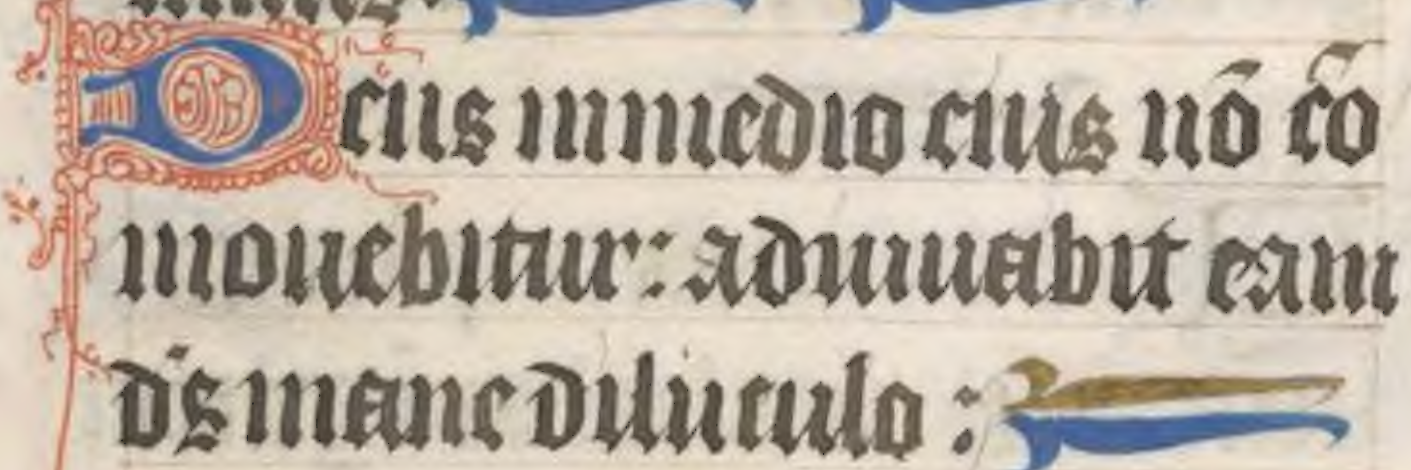 Deus in medio eius nō cō
mouebitur: adiuuabit eam
ds̄ mane diluculo :